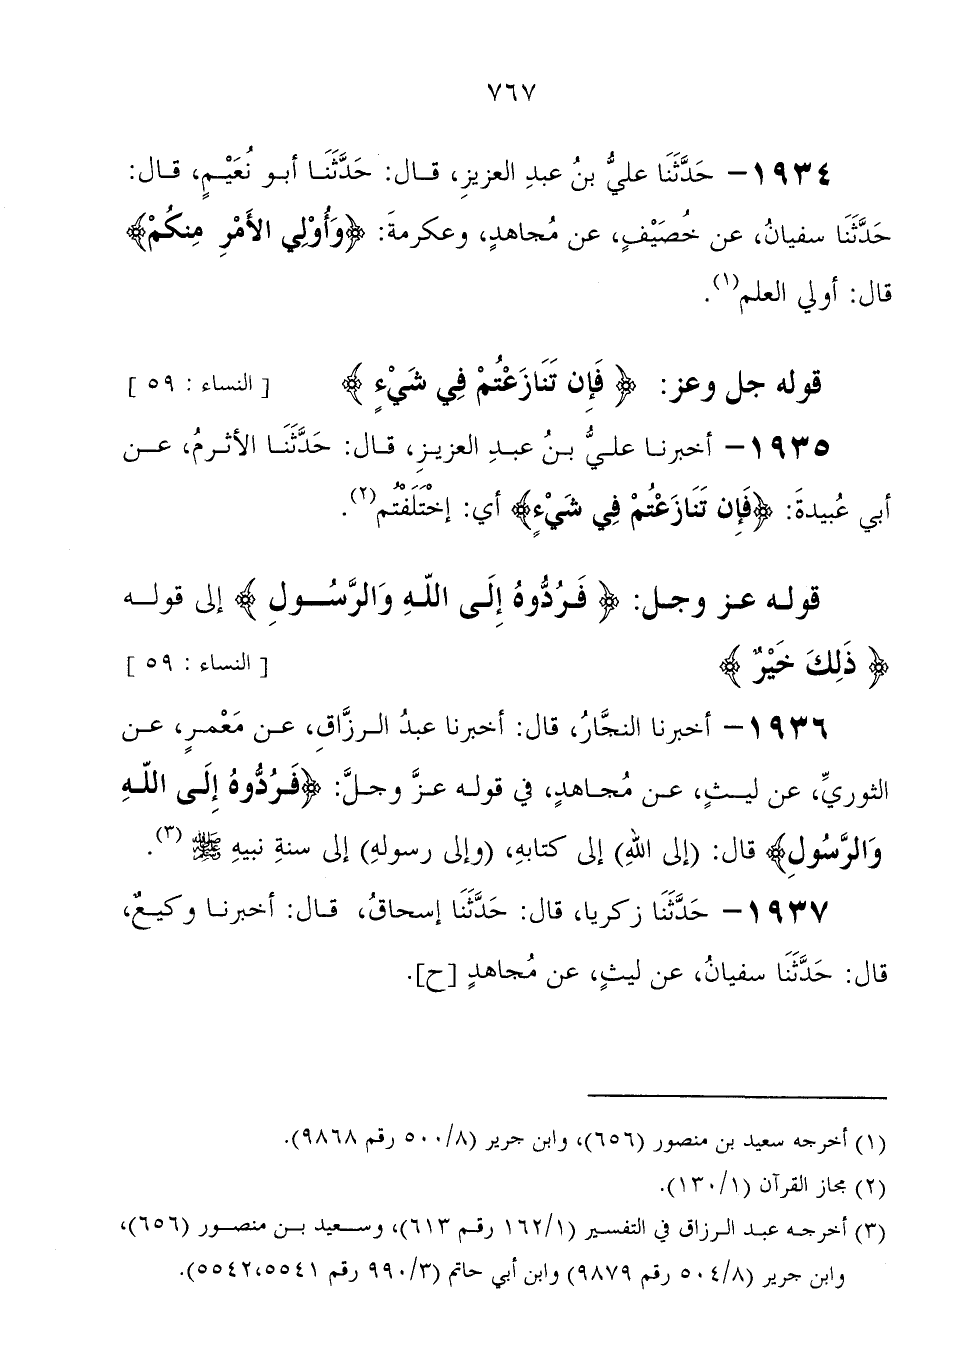 ٧٦٧
١٩٣٤- حَدَّثَنَا عليُّ بنُ عبدِ العزيزِ، قـال: حَدَّثَنَـا أبـو نُعَيْـمٍ، قـال:
حَدَّثَنَا سفيانُ، عن خُصَيْفٍ، عن مُجاهدٍ، وعكرمةَ: ﴿وَأُوْلِي الأَمْرِ مِنكُمْ﴾
قال: أولي العلم(١).
قوله جل وعز: ﴿ فَإِن تَنَازَعْتُمْ فِي شَيْءٍ ﴾ [ النساء : ٥٩ ]
١٩٣٥- أخبرنـا علـيُّ بـنُ عبـدِ العزيـزِ، قـال: حَدَّثَنَـا الأثـرمُ، عـن
أبي عُبيدةَ: ﴿فَإِن تَنَازَعْتُمْ فِي شَيْءٍ﴾ أي: إخْتَلَفْتُم(٢).
قولـه عـز وجـل: ﴿ فَـرُدُّوهُ إِلَـى اللّهِ وَالرَّسُـولِ ﴾ إلى قولـه
﴿ ذَلِكَ خَيْرٌ ﴾ [ النساء : ٥٩ ]
١٩٣٦- أخبرنا النجَّارُ، قال: أخبرنا عبدُ الـرزَّاقِ، عـن مَعْمـرٍ، عـن
الثوريِّ، عن ليـثٍ، عـن مُجـاهدٍ، في قولـه عـزَّ وجـلَّ: ﴿فَـرُدُّوهُ إِلَـى اللّهِ
وَالرَّسُولِ﴾ قال: (إلى اللهِ) إلى كتابهِ، (وإلى رسولهِ) إلى سنةِ نبيهِ ﷺ (٣).
١٩٣٧- حَدَّثَنَا زكريا، قال: حَدَّثَنَا إسحاقُ، قـال: أخبرنـا وكيـعٌ،
قال: حَدَّثَنَا سفيانُ، عن ليثٍ، عن مُجاهدٍ [ح].
(١) أخرجه سعيد بن منصور (٦٥٦)، وابن جرير (٥٠٠/٨ رقم ٩٨٦٨).
(٢) مجاز القرآن (١٣٠/١).
(٣) أخرجـه عبـد الـرزاق في التفسير (١٦٢/١ رقـم ٦١٣)، وسـعيد بـن منصـور (٦٥٦)،
وابن جرير (٥٠٤/٨ رقم ٩٨٧٩) وابن أبي حاتم (٩٩٠/٣ رقم ٥٥٤١،٥٥٤٢).